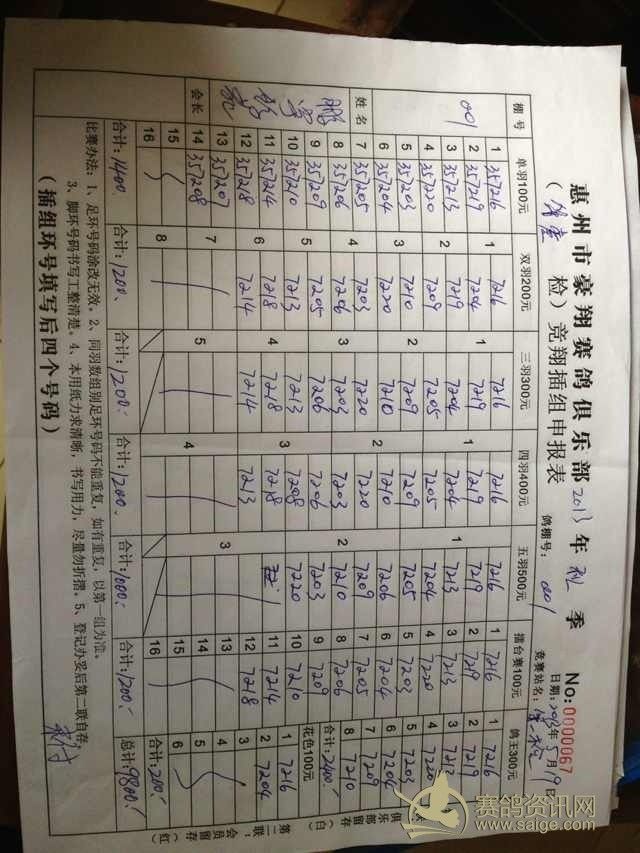 惠州市豪翔赛鸽俱乐部2013年秋季
检）竞翔插组申报表
鸽棚号：001
No:0000067
日期：2013年5月19日
竞赛站名：
棚号 001
姓名
会长
单羽100元
1 357216
2 357219
3 357213
4 357220
5 357203
6 357204
7 357205
8 357206
9 357209
10 357210
11 357214
12 357218
13 357207
14 357208
15
16
合计：1400
双羽200元
1 7216 7204
2 7219 7209
3 7210 7220
4 7203 7206
5 7205 7213
6 7218 7214
7
8
合计：1200.
三羽300元
1 7216 7219 7204
2 7205 7209 7210
3 7220 7203
4 7213 7218 7214
5
合计：1200.
四羽400元
1 7216 7219 7204 7205
2 7209 7210 7220 7203
3 7206 7208 7218 7213
4
合计：1200.
五羽500元
1 7216 7219 7213 7204 7205
2 7206 7209 7210 7203 7220
3
合计：1000.
擂台赛100元
1 7216
2 7219
3 7213
4 7220
5 7203
6 7204
7 7205
8 7206
9 7209
10 7210
11 7214
12 7218
13
14
15
16
合计：1200.
鸽王300元
1 7216
2 7219
3 7213
4 7220
5 7203
6 7204
7 7209
8 7210
合计：2400.
花色100元
1 7216
2 7204
3
4
5
6
合计：200.
总计：9800.
俱乐部存留（白）
第二联：会员存留（红）
比赛办法：1、足环号码涂改无效。2、同羽数组别足环号码不能重复，如有重复，以第一组为准。
3、脚环号码书写工整清楚。4、本用纸力求清晰，书写用力，尽量勿折摺。5、登记办妥后第二联自存。
（插组环号填写后四个号码）
赛鸽资讯网
www.saige.com